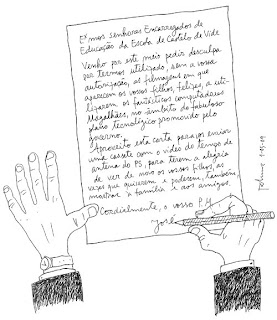 Exmos senhores Encarregados de
Educação da Escola de Castelo de Vide
Venho por este meio pedir desculpa
por termos utilizado, sem a vossa
autorização, as filmagens em que
aparecem os vossos filhos, felizes, a uti-
lizarem os fantásticos computadores
Magalhães, no âmbito do fabuloso
plano tecnológico promovido pelo
governo.
Aproveito esta carta para vos enviar
uma cassete com o vídeo do tempo de
antena do PS, para terem a alegria
de ver de novo os vossos filhos, as
vezes que quiserem e poderem, também,
mostrar à família e aos amigos.
Cordialmente, o vosso P.M.
José